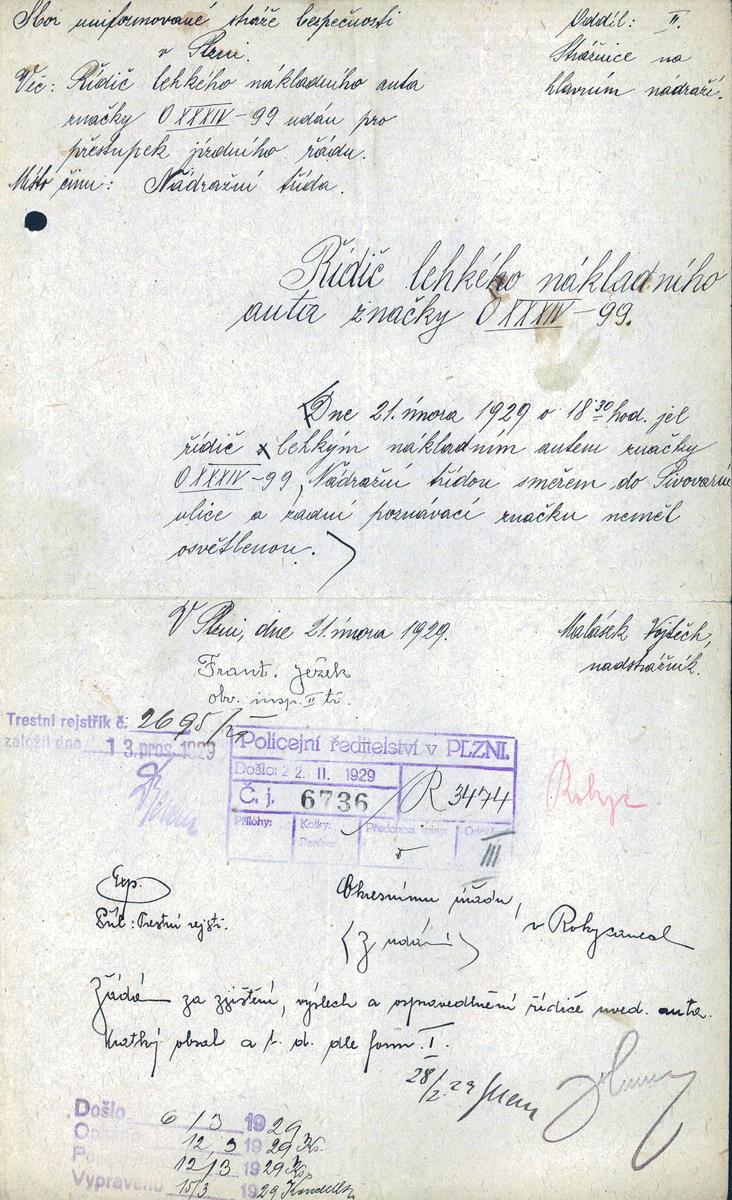 Sbor uniformované stráže bezpečnosti
v Plzni.
Oddíl: II.
Strážnice na
hlavním nádraží.
Věc: Řidič lehkého nákladního auta
značky O XXXIV-99 udán pro
přestupek jízdního řádu.
Místo činu: Nádražní třída.
Řidič lehkého nákladního
auta značky O XXXIV-99.
Dne 21. února 1929 o 18 30 hod. jel
řidič x lehkým nákladním autem značky
O XXXIV-99, Nádražní třídou směrem do Pivovarní
ulice a zadní poznávací značku neměl
osvětlenou.
V Plzni, dne 21. února 1929.
Malásek Vojtěch,
nadstrážník.
Frant. Ježek
obv. insp. II tř.
Trestní rejstřík č. 2695/
založil dne 13. pros. 1929
Policejní ředitelství v PLZNI.
Došlo: 22. II. 1929
Č. j. 6736
R 3474
Přílohy: Kolky: Předchozí spisy:
III
Rokyc
Exp.
Příl: Trestní rejstř.
Okresnímu úřadu,
v Rokycanech
(Z udání)
Žádá za zjištění, výslech a ospravedlnění řidiče uved. auta.
Krátký obsah a t. d. dle form. I.
28/2 29
Došlo 6/3 1929
12/3 1929
12/3 1929
Vypraveno 15/3 1929